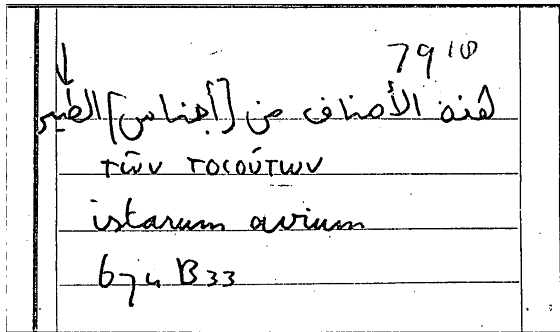 79 10
هذه الأصناف من [أجناس] الطير
τῶν τοιούτων
istarum avium
614 B33